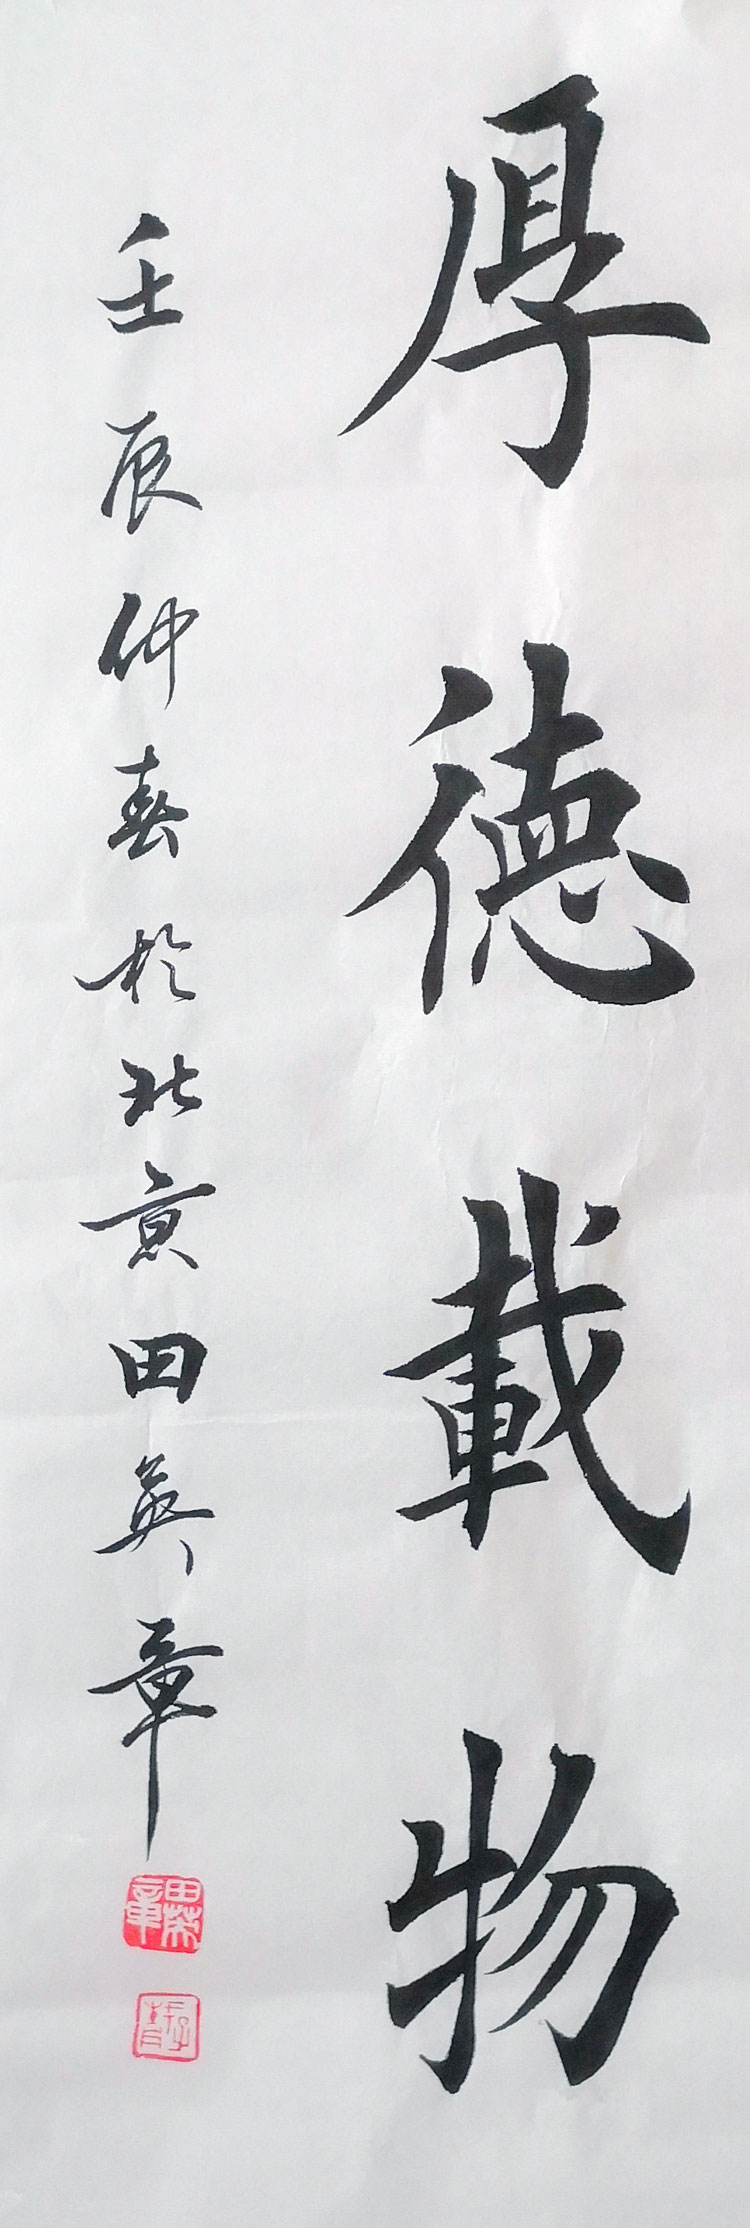 厚德載物
壬辰仲春於北京田英章
田英章